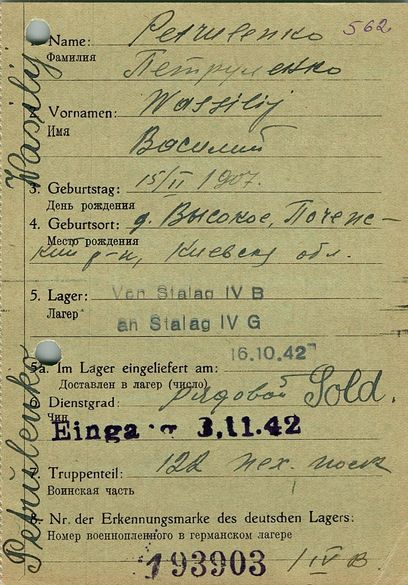 562
1. Name: Petrulenko
Фамилия Петруленко
2. Vornamen: Wassilij
Имя Василий
3. Geburtstag: 15/II 1907.
День рождения
4. Geburtsort: д. Высокое,
Место рождения
р-н, Киевск обл.
5. Lager: Von Stalag IV B
Лагерь an Stalag IV G
16.10.42
5a. Im Lager eingeliefert am:
Доставлен в лагерь (число)
6. Dienstgrad: рядовой Sold.
Чин
Einga 3.11.42
7. Truppenteil: 122 пех. полк
Воинская часть
8. Nr. der Erkennungsmarke des deutschen Lagers:
Номер военнопленного в германском лагере
193903 / IV B
Petrulenko Wasilij